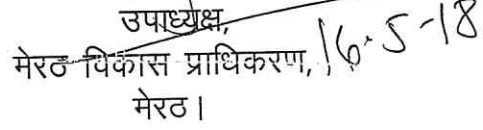 उपाध्यक्ष,
मेरठ विकास प्राधिकरण, 16.5-18
मेरठ।